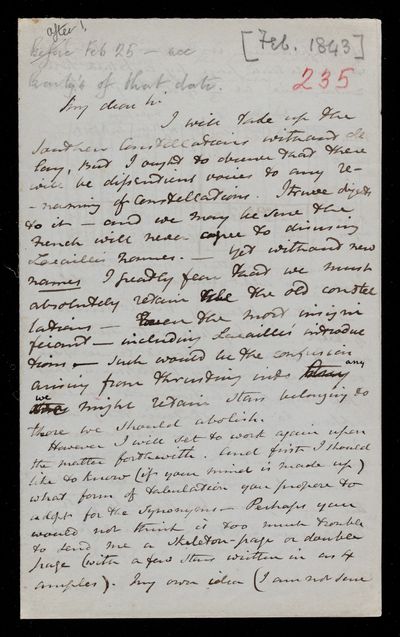 after!
Before Feb 25 - see
of that date.
[Feb. 1843]
235
My dear Sir
I will take up the
Southern Constellations without de
lay, But I ought to observe that there
will be dissentient voices to any re-
-naming of Constellations.
to it - and we may be sure the
French will never agree to disusing
Lacaille's names. - Yet without new
names I greatly fear that we must
absolutely retain the the old constel
lations - Even the most insigni
ficant - including Lacaille's introduc
tions - Such would be the confusion
arising from thrusting into any
we might retain stars belonging to
those we should abolish.
However I will set to work again upon
the matter forthwith. And first I should
like to know (if your mind is made up)
what form of tabulation you propose to
adopt for the Synonyms - Perhaps you
would not think it too much trouble
to send me a skeleton-page or double
page (with a few stars written in as ex
amples). My own idea (I am not sure